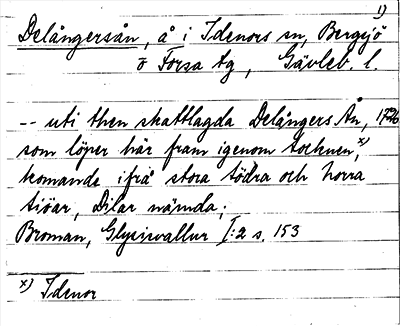 1)
Delångersån, å i Idenors sn, Bergsjö
o Forsa tg, Gävleb. l.
-- uti then skattlagda Delångers Ån, 1726
som löper här fram igenom socknen, x)
komande ifrå stora södra och norra
siöar, Dilar nämda;
Broman, Glysisvallur I:2 s. 153
x) Idenor